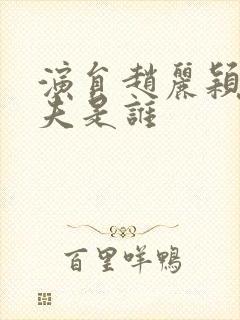 演員趙麗穎
夫是誰
百里咩鴨